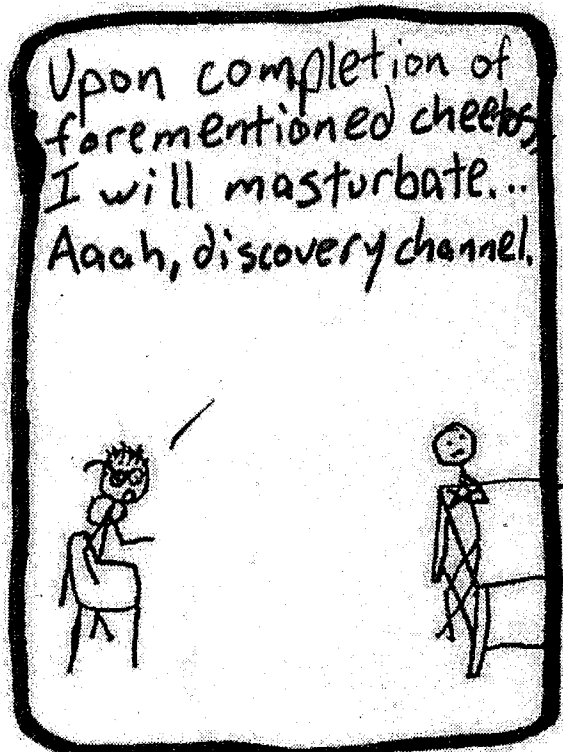 Upon completion of
forementioned cheetos,
I will masturbate...
Aaah, discovery channel.